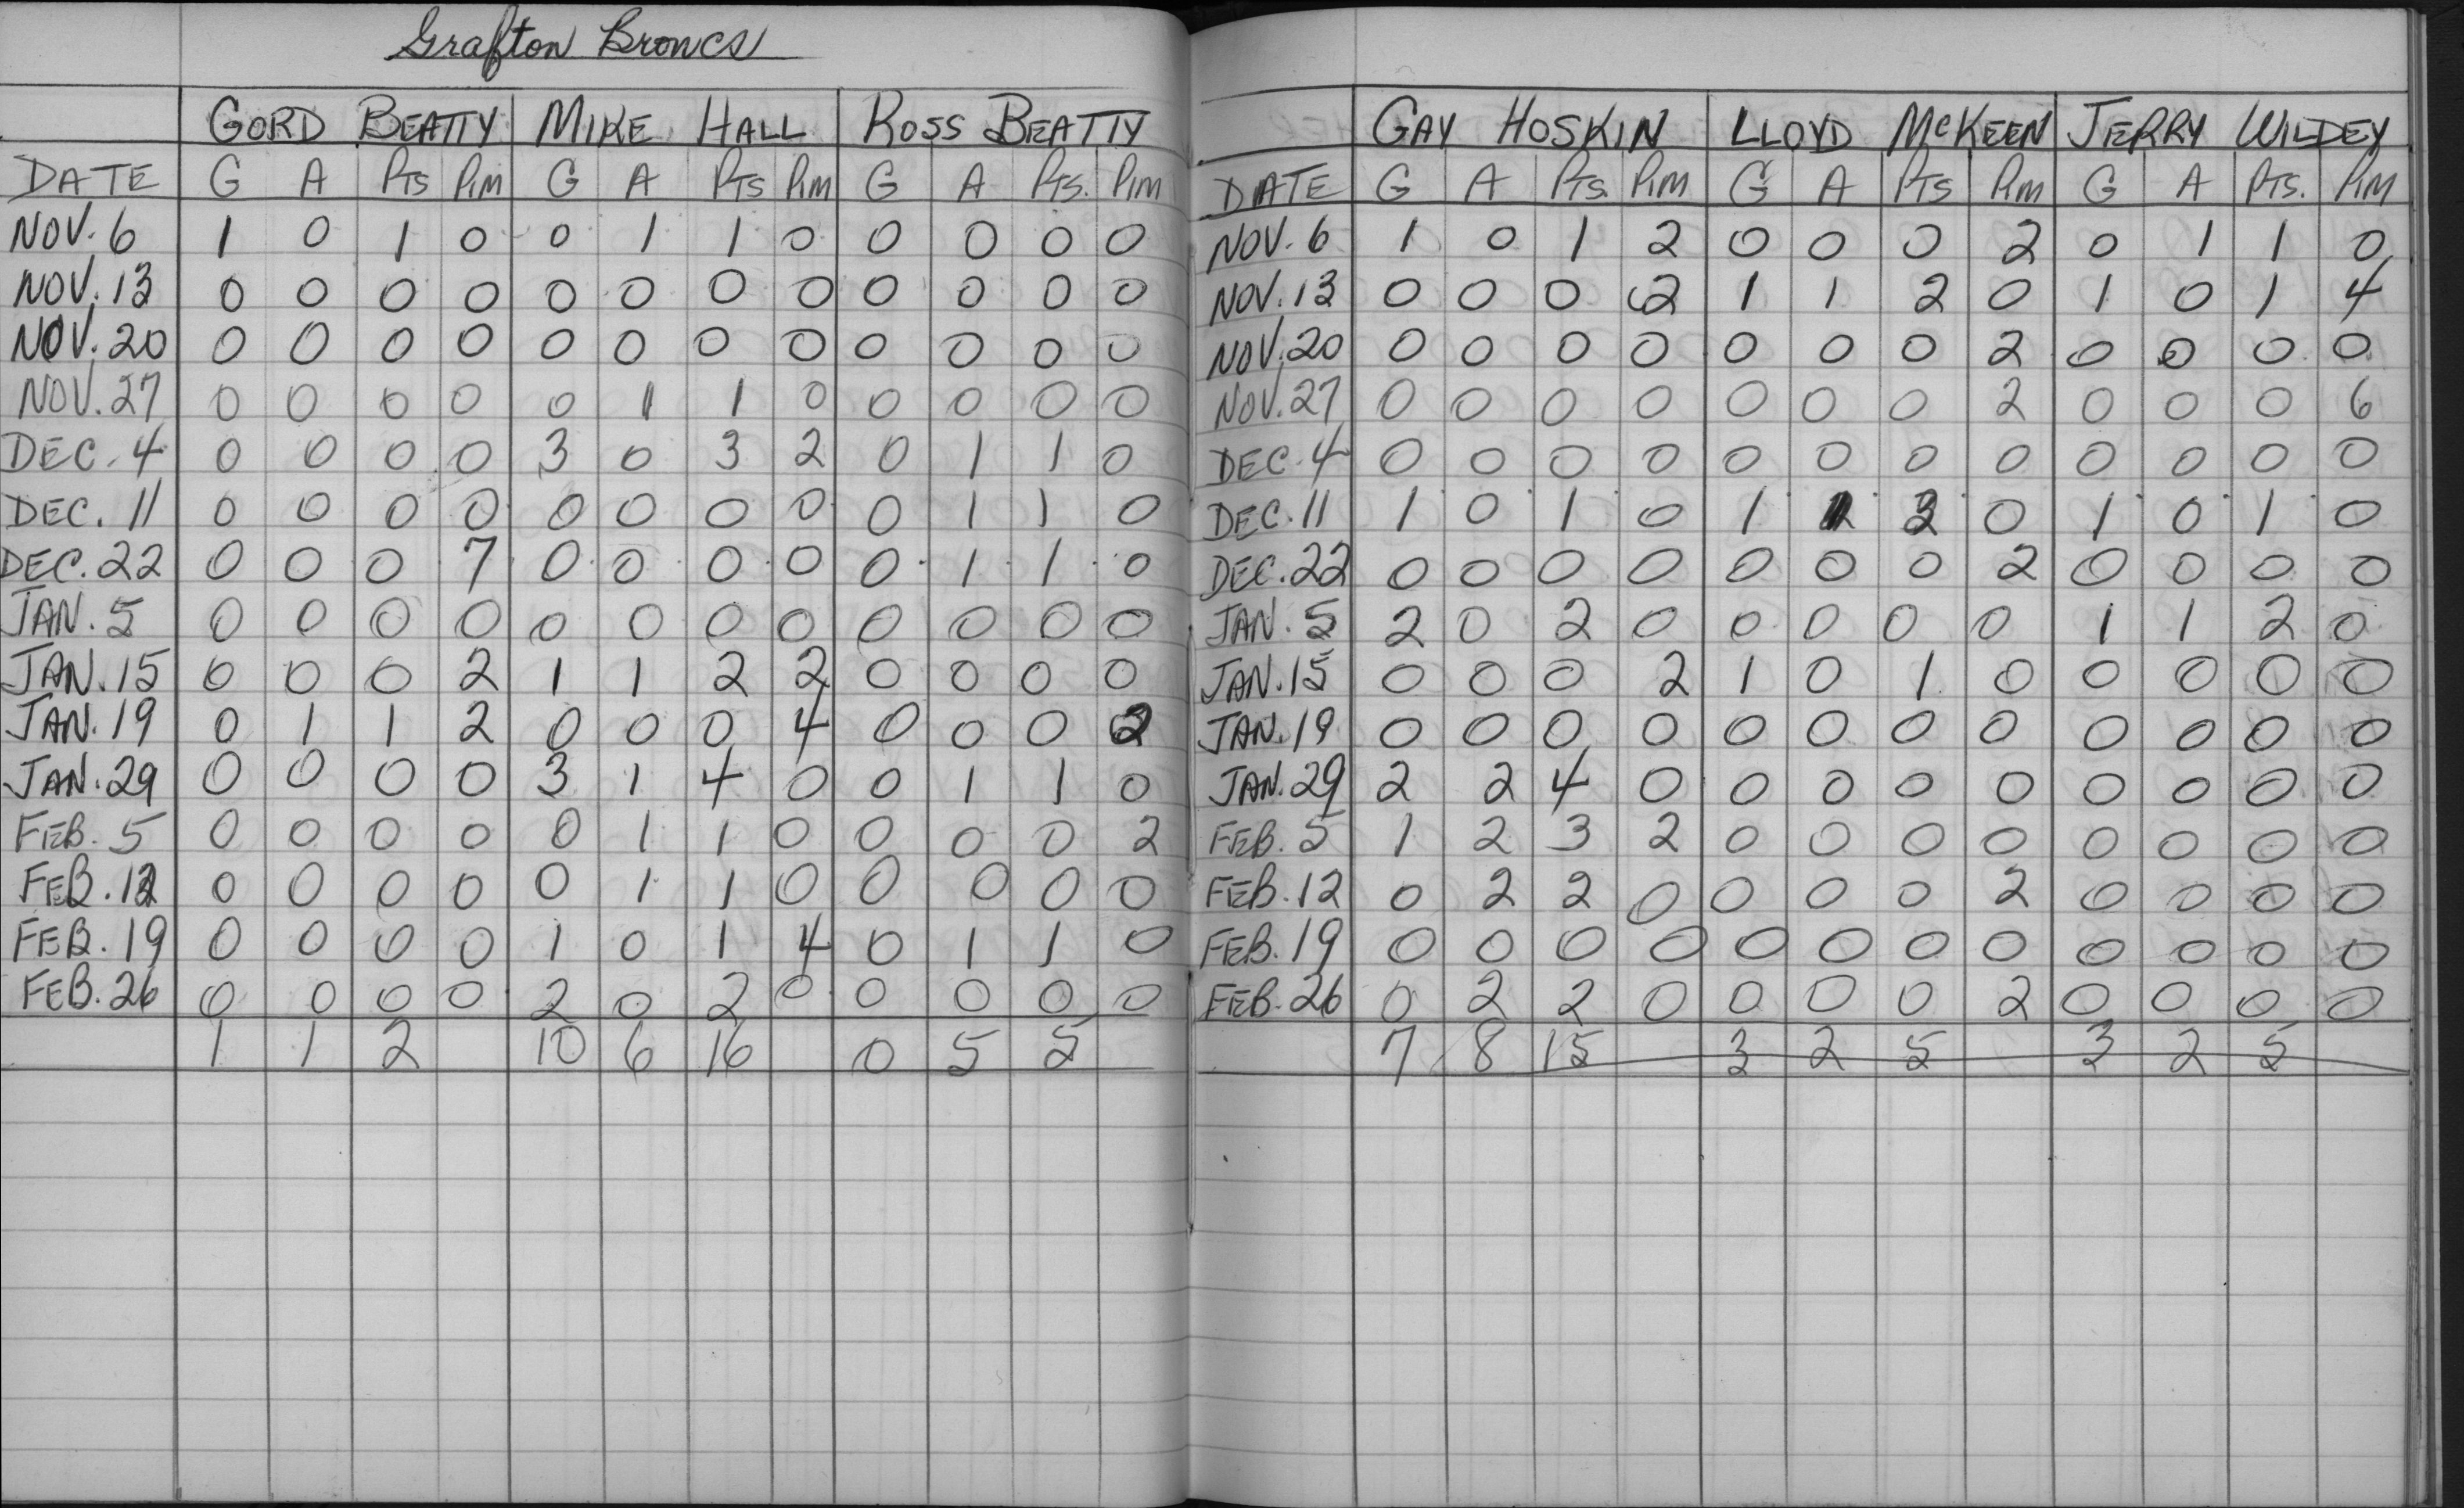 Grafton Broncs
GORD BEATTY MIKE HALL ROSS BEATTY
DATE G A PTS PIM G A PTS PIM G A PTS. PIM
NOV. 6 1 0 1 0 0 1 1 0 0 0 0 0
NOV. 13 0 0 0 0 0 0 0 0 0 0 0 0
NOV. 20 0 0 0 0 0 0 0 0 0 0 0 0
NOV. 27 0 0 0 0 0 1 1 0 0 0 0 0
DEC. 4 0 0 0 0 3 0 3 2 0 1 1 0
DEC. 11 0 0 0 0 0 0 0 0 0 1 1 0
DEC. 22 0 0 0 7 0 0 0 0 0 1 1 0
JAN. 5 0 0 0 0 0 0 0 0 0 0 0 0
JAN. 15 0 0 0 2 1 1 2 2 0 0 0 0
JAN. 19 0 1 1 2 0 0 0 4 0 0 0 2
JAN. 29 0 0 0 0 3 1 4 0 0 1 1 0
FEB. 5 0 0 0 0 0 1 1 0 0 0 0 2
FEB. 12 0 0 0 0 0 1 1 0 0 0 0 0
FEB. 19 0 0 0 0 1 0 1 4 0 1 1 0
FEB. 26 0 0 0 0 2 0 2 0 0 0 0 0
1 1 2 10 6 16 0 5 5
GAY HOSKIN LLOYD McKEEN JERRY WILDEY
DATE G A PTS. PIM G A PTS PIM G A PTS. PIM
NOV. 6 1 0 1 2 0 0 0 2 0 1 1 0
NOV. 13 0 0 0 2 1 1 2 0 1 0 1 4
NOV. 20 0 0 0 0 0 0 0 2 0 0 0 0
NOV. 27 0 0 0 0 0 0 0 2 0 0 0 6
DEC. 4 0 0 0 0 0 0 0 0 0 0 0 0
DEC. 11 1 0 1 0 1 0 1 0 1 0
DEC. 22 0 0 0 0 0 0 0 2 0 0 0 0
JAN. 5 2 0 2 0 0 0 0 0 1 1 2 0
JAN. 15 0 0 0 2 1 0 1 0 0 0 0 0
JAN. 19 0 0 0 0 0 0 0 0 0 0 0 0
JAN. 29 2 2 4 0 0 0 0 0 0 0 0 0
FEB. 5 1 2 3 2 0 0 0 0 0 0 0 0
FEB. 12 0 2 2 0 0 0 0 2 0 0 0 0
FEB. 19 0 0 0 0 0 0 0 0 0 0 0 0
FEB. 26 0 2 2 0 0 0 0 2 0 0 0 0
7 8 15 3 2 5 3 2 5